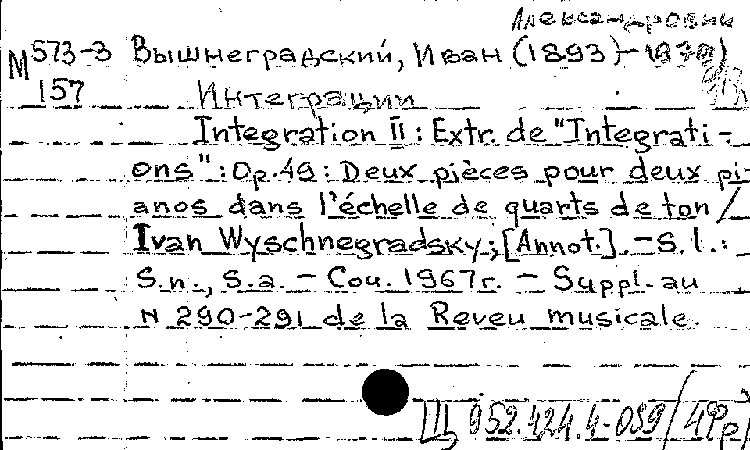 Александрович
М 573-3 Вышнеградский, Иван (1893)-
157 Интеграции
Integration II : Extr. de "Integrati-
ons" : Op. 49 : Deux pièces pour deux pi-
anos dans l'échelle de quarts de ton /
Ivan Wyschnegradsky; [Annot.]. – S. l. :
S. n., S. a. – Соч. 1967г. – Suppl. au
N 290-291 de la Reveu musicale.
Ц 952.424.4-089